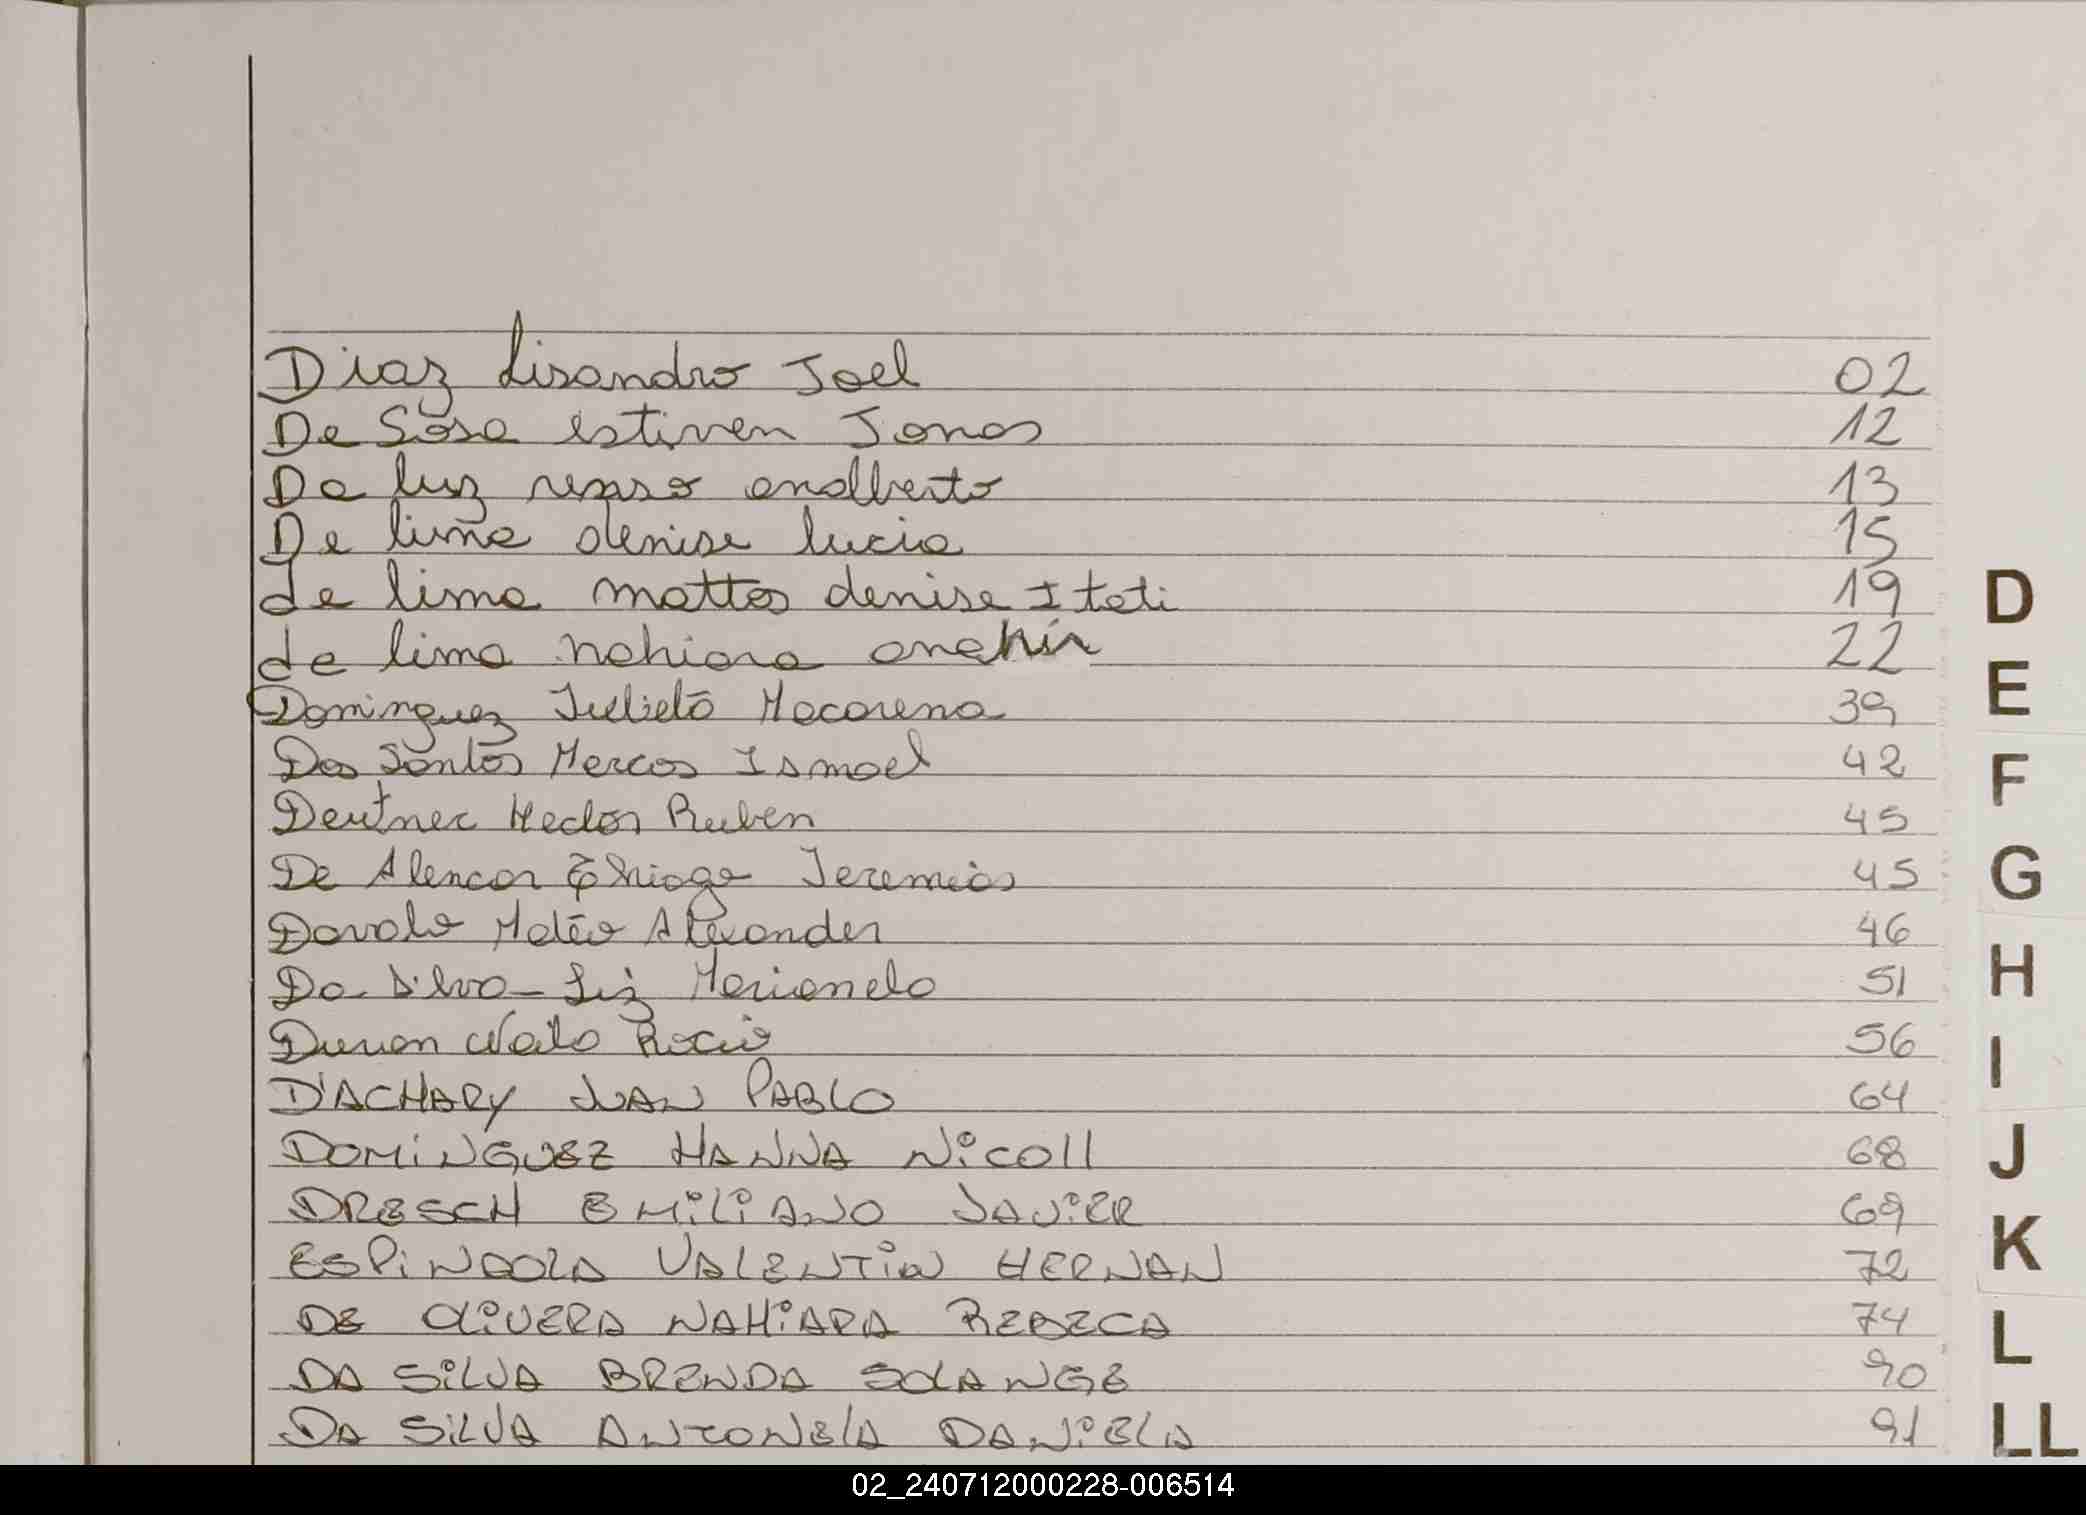 Diaz Lisandro Joel 02
De Sosa estiven Jonas 12
Da luz renso analberto 13
De lima denise lucia 15
de lima mattos denise Itati 19
de lima nahiara anahir 22
Dominguez Julieta Macarena 39
Dos Santos Marcos Ismael 42
Deutner Hector Ruben 45
De Alencar Thiago Jeremias 45
Davalo Mateo Alexander 46
Da Silva Liz Marianela 51
Duran Rocio 56
D'ACHARY JUAN PABLO 64
DOMINGUEZ HANNA NICOll 68
DRESCH EMILIANO JAVIER 69
ESPINDOLA VALENTIN HERNAN 72
DE OLIVERA NAHIARA REBECA 74
DA SILVA BRENDA SOLANGE 90
DA SILVA ANTONELA DANIELA 91
D
E
F
G
H
I
J
K
L
LL
02_240712000228-006514